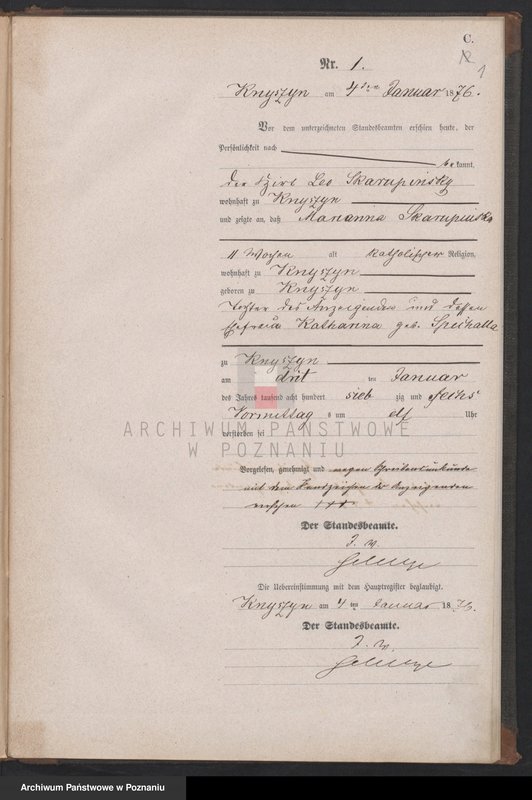 C.
1
Nr. 1.
Knyszyn am 4ten Januar 1876.
Vor dem unterzeichneten Standesbeamten erschien heute, der
Persönlichkeit nach
be kannt,
der Wirt Leo Skarupinsky
wohnhaft zu Knyszyn
und zeigte an, daß Marianna Skarupinska
11 Wochen alt katholischer Religion,
wohnhaft zu Knyszyn
geboren zu Knyszyn
Tochter des Anzeigenden und dessen
Ehefrau Katharina geb. Spichalla
zu Knyszyn
am drit ten Januar
des Jahres tausend acht hundert sieb zig und sechs
Vormittag s um elf Uhr
verstorben sei
ARCHIWUM PAŃSTWOWE
W POZNANIU
Vorgelesen, genehmigt und wegen Schreibensunkunde
mit dem Handzeichen des Anzeigenden
versehen +++
Der Standesbeamte.
Die Uebereinstimmung mit dem Hauptregister beglaubigt.
Knyszyn am 4 ten Januar 1876.
Der Standesbeamte.
Archiwum Państwowe w Poznaniu